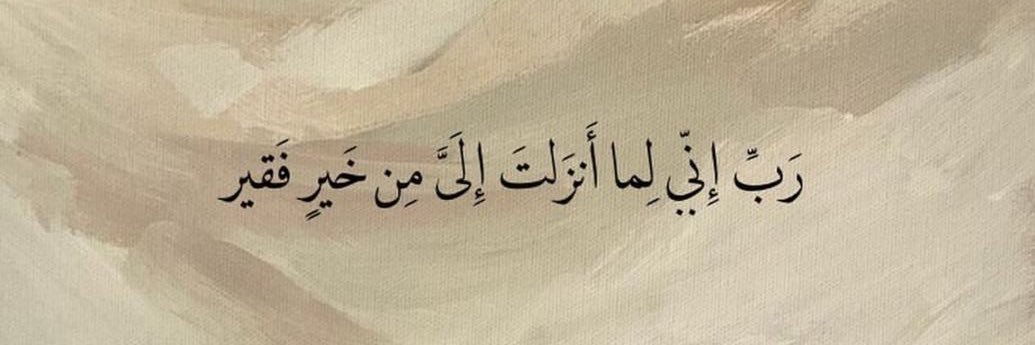 رَبِّ إِنّي لِما أَنزَلتَ إِلَىَّ مِن خَيرٍ فَقير